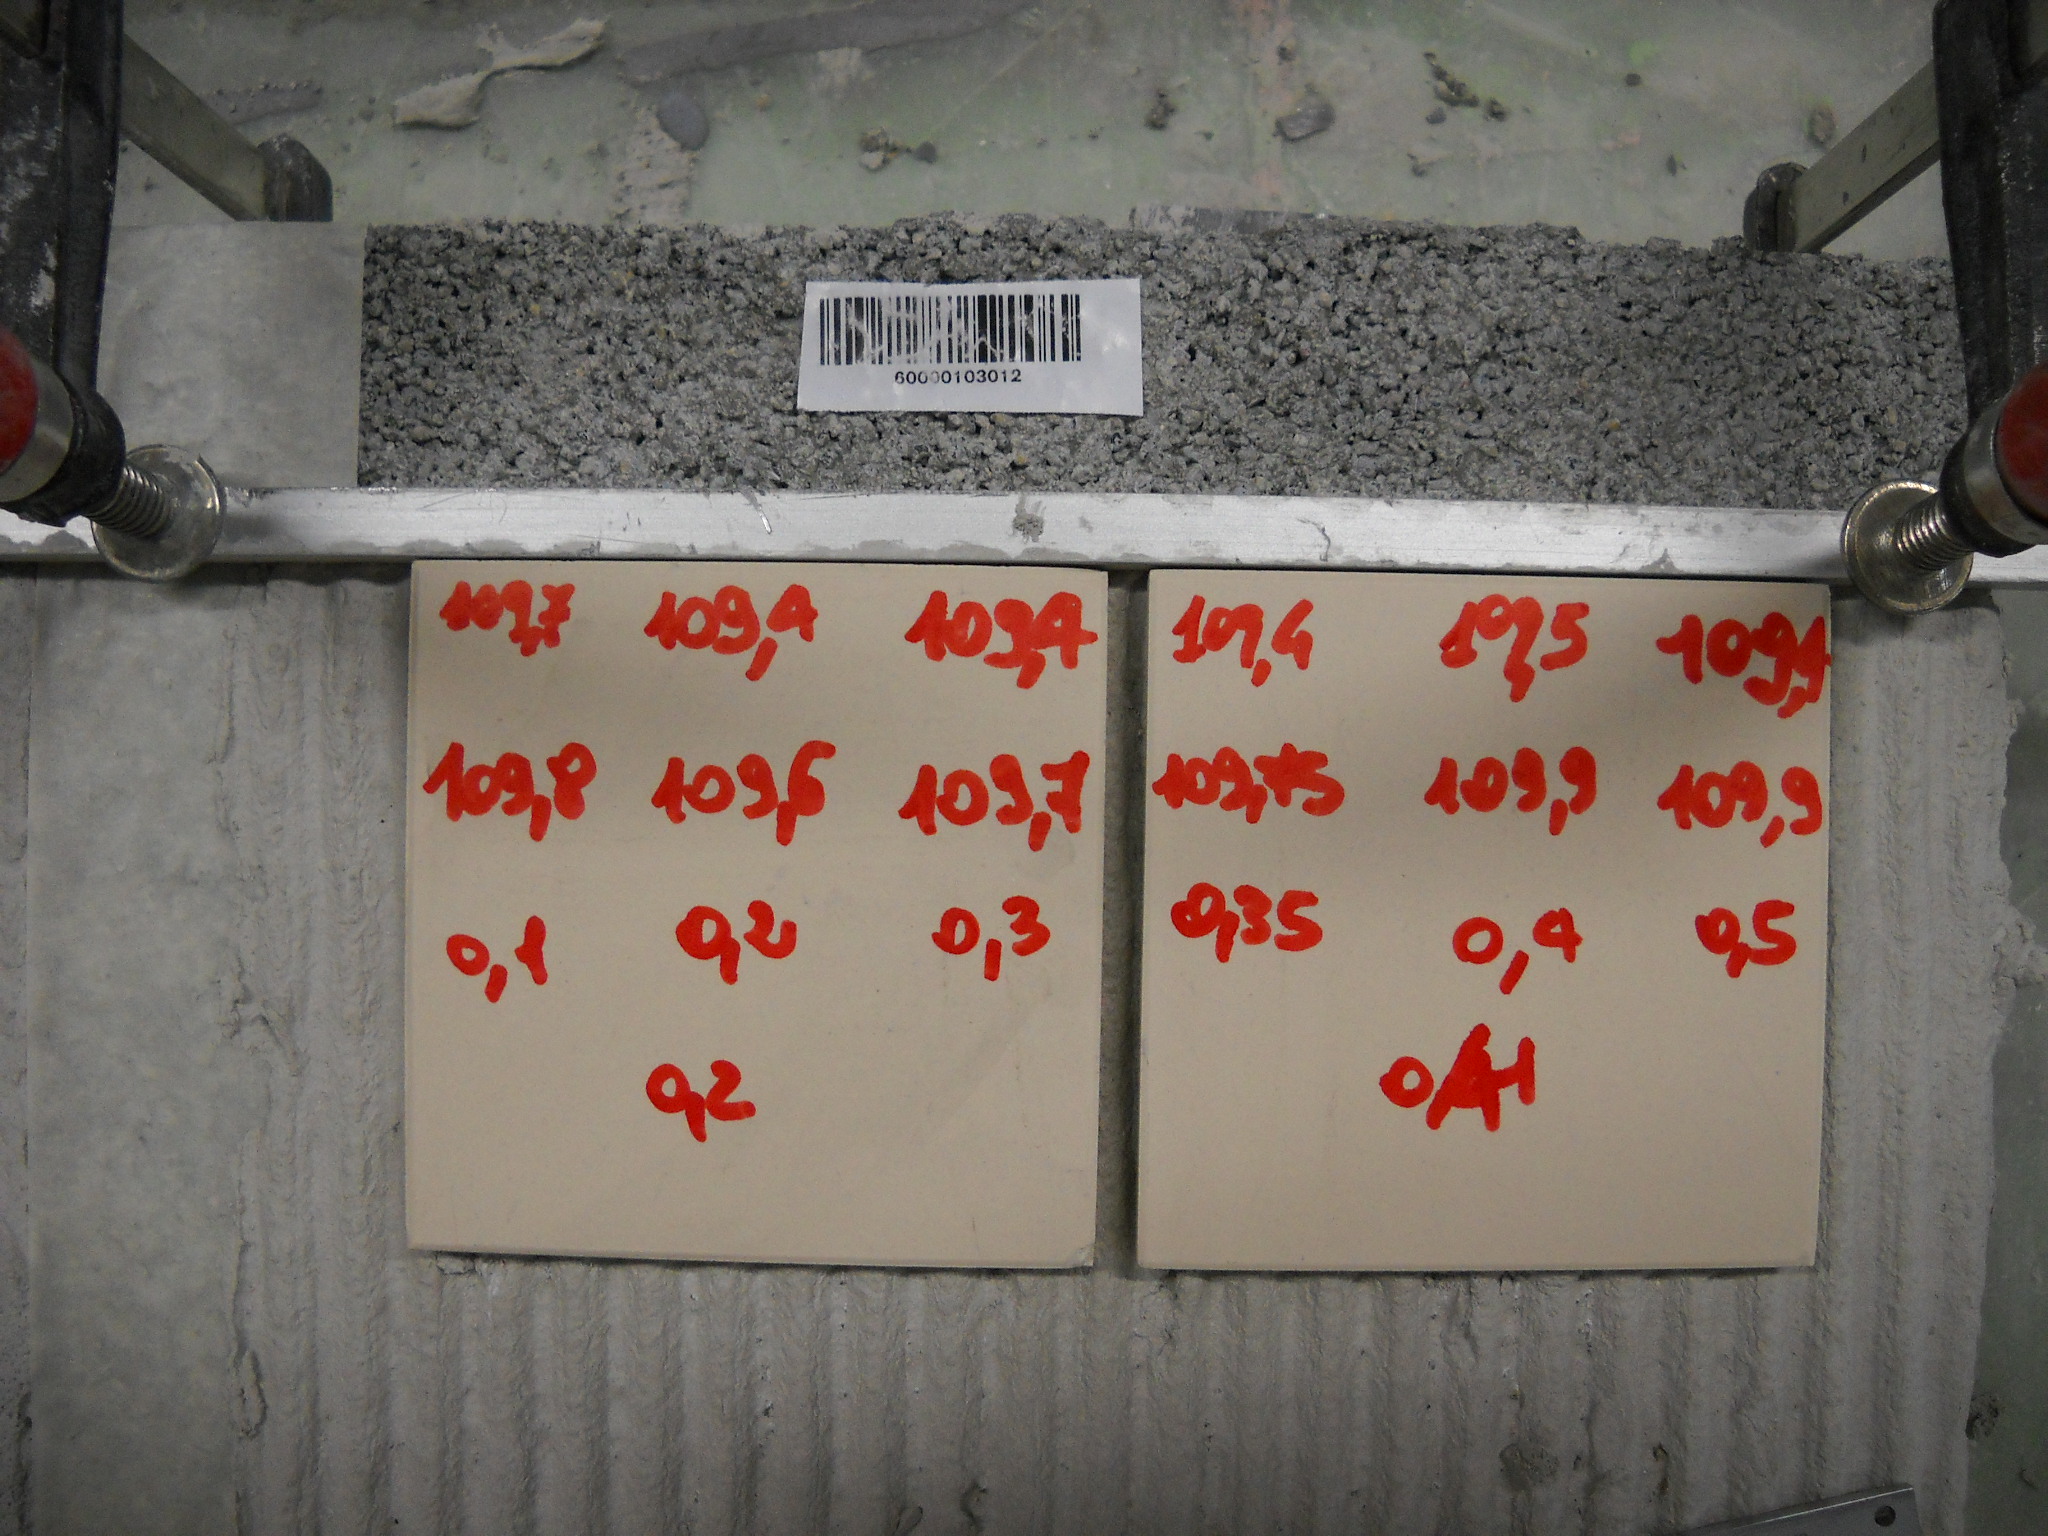 60000103012
109,7 109,4 109,4
109,8 109,6 109,7
0,1 0,2 0,3
0,2
109,4 109,5 109,4
109,75 109,9 109,9
0,35 0,4 0,5